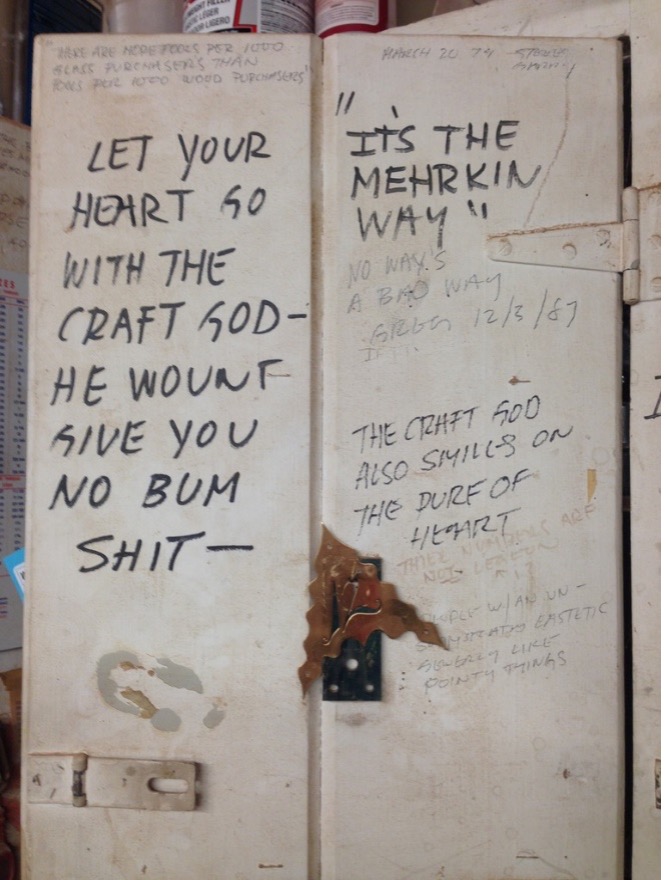 "THERE ARE MORE FOOLS PER 1000
GLASS PURCHASERS THAN
FOOLS PER 1000 WOOD PURCHASERS"
LET YOUR
HEART GO
WITH THE
CRAFT GOD-
HE WOUNT
GIVE YOU
NO BUM
SHIT—
MARCH 20 74
"IT'S THE
MEHRKIN
WAY"
NO WAY'S
A BAD WAY
GREG 12/3/87
THE CRAFT GOD
ALSO SMILES ON
THE PURE OF
HEART
NUMBERS ARE
NOT
PEOPLE W/ AN UN-
SOPHISTICATED ESTETIC
GENERLY LIKE
POINTY THINGS